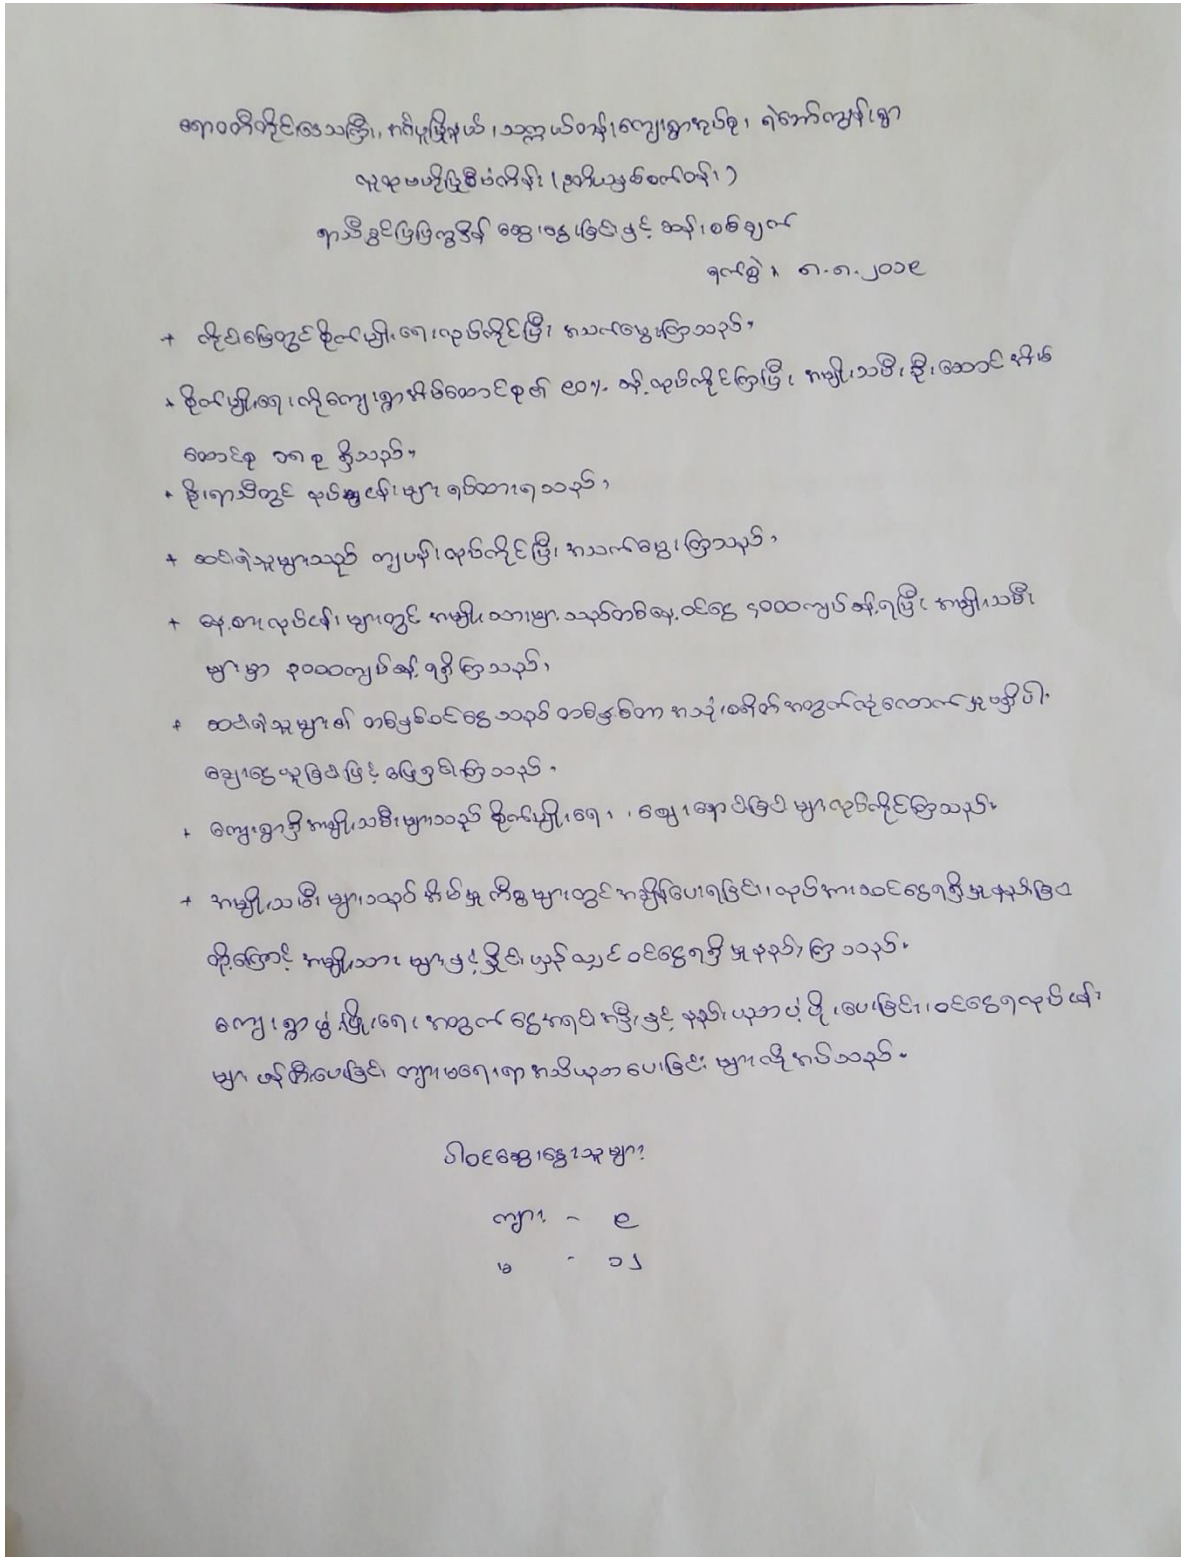 ဧရာဝတီတိုင်းဒေသကြီး၊ အင်္ဂပူမြို့နယ်၊ သတ္တယ်ဝန်းကျေးရွာအုပ်စု၊ ရဲဘော်ကျွန်းရွာ
လူထုဗဟိုပြုစီမံကိန်း (ဒုတိယနှစ်စက်ဝန်း)
ရာသီခွင်ပြပြက္ခဒိန် ဆွေးနွေးခြင်းနှင့် ဆန်းစစ်ချက်
ရက်စွဲ ၊ ၈.၈.၂၀၁၉
+ ကိုင်းမြေတွင်စိုက်ပျိုးရေးလုပ်ကိုင်ပြီး အသက်မွေးကြသည်။
+ စိုက်ပျိုးရေးကိုကျေးရွာအိမ်ထောင်စု၏ ၉၀% ခန့် လုပ်ကိုင်ကြပြီး အမျိုးသမီးဦးဆောင်အိမ်
ထောင်စု ၁၈ စု ရှိသည်။
+ မိုးရာသီတွင် လုပ်ငန်းများ ရပ်ထားရသည်။
+ ဆင်းရဲသူများသည် ကျပန်းလုပ်ကိုင်ပြီး အသက်မွေးကြသည်။
+ နေ့စားလုပ်ငန်းများတွင် အမျိုးသားများသည်တစ်နေ့ဝင်ငွေ ၄၀၀၀ကျပ်ခန့်ရပြီး အမျိုးသမီး
များမှာ ၃၀၀၀ကျပ်ခန့် ရရှိကြသည်။
+ ဆင်းရဲသူများ၏ တစ်နှစ်ဝင်ငွေသည် တစ်နှစ်တာ အသုံးစရိတ်အတွက်လုံလောက်မှုမရှိပါ။
ချေးငွေယူခြင်းဖြင့် ဖြေရှင်းကြသည်။
+ ကျေးရွာရှိအမျိုးသမီးများသည် စိုက်ပျိုးရေး ၊ ဈေးရောင်းခြင်းများလုပ်ကိုင်ကြသည်။
+ အမျိုးသမီးများသည် အိမ်မှုကိစ္စများတွင်အချိန်ပေးရခြင်း၊ လုပ်အားခဝင်ငွေရရှိမှုနည်းခြင်း
တို့ကြောင့် အမျိုးသားများနှင့်နှိုင်းယှဉ်လျှင် ဝင်ငွေရရှိမှုနည်းကြသည်။
ကျေးရွာဖွံ့ဖြိုးရေးအတွက် ငွေအရင်းအနှီးနှင့် နည်းပညာပံ့ပိုးပေးခြင်း၊ ဝင်ငွေရလုပ်ငန်း
များ ဖန်တီးပေးခြင်း ကျားမရေးရာ အသိပညာပေးခြင်းများလိုအပ်သည်။
ပါဝင်ဆွေးနွေးသူများ
ကျား - ၉
မ - ၁၂